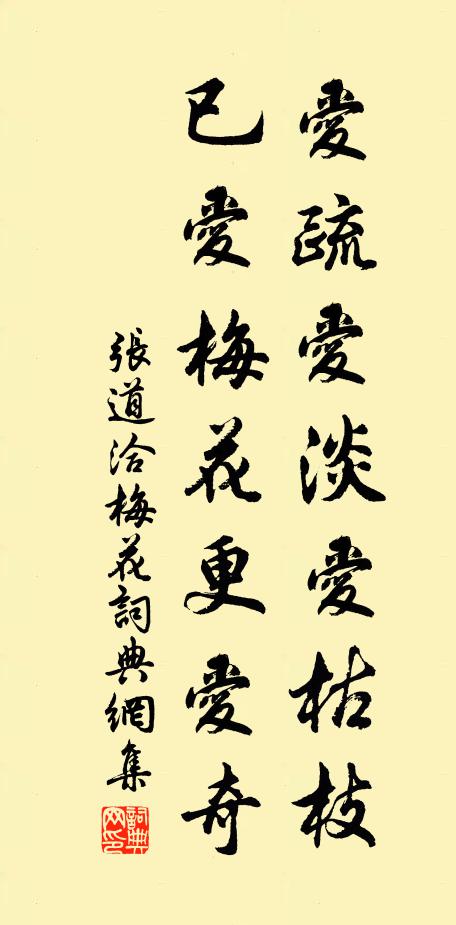 愛疏愛淡愛枯枝
已愛梅花更愛奇
張道洽梅花詞典網集
詞典
网印